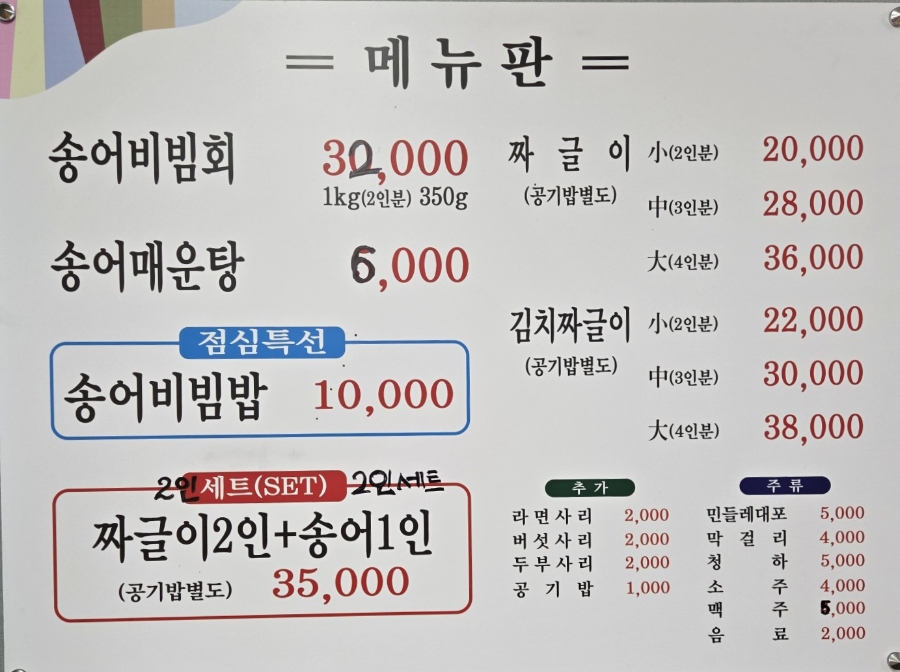 = 메뉴판 =
송어비빔회 32,000
1kg(2인분) 350g
송어매운탕 6,000
점심특선
송어비빔밥 10,000
2인 세트(SET) 2인세트
짜글이2인+송어1인
(공기밥별도) 35,000
짜글이 小(2인분) 20,000
(공기밥별도)
中(3인분) 28,000
大(4인분) 36,000
김치짜글이 小(2인분) 22,000
(공기밥별도)
中(3인분) 30,000
大(4인분) 38,000
추가
라면사리 2,000
버섯사리 2,000
두부사리 2,000
공기밥 1,000
주류
민들레대포 5,000
막걸리 4,000
청하 5,000
소주 4,000
맥주 5,000
음료 2,000